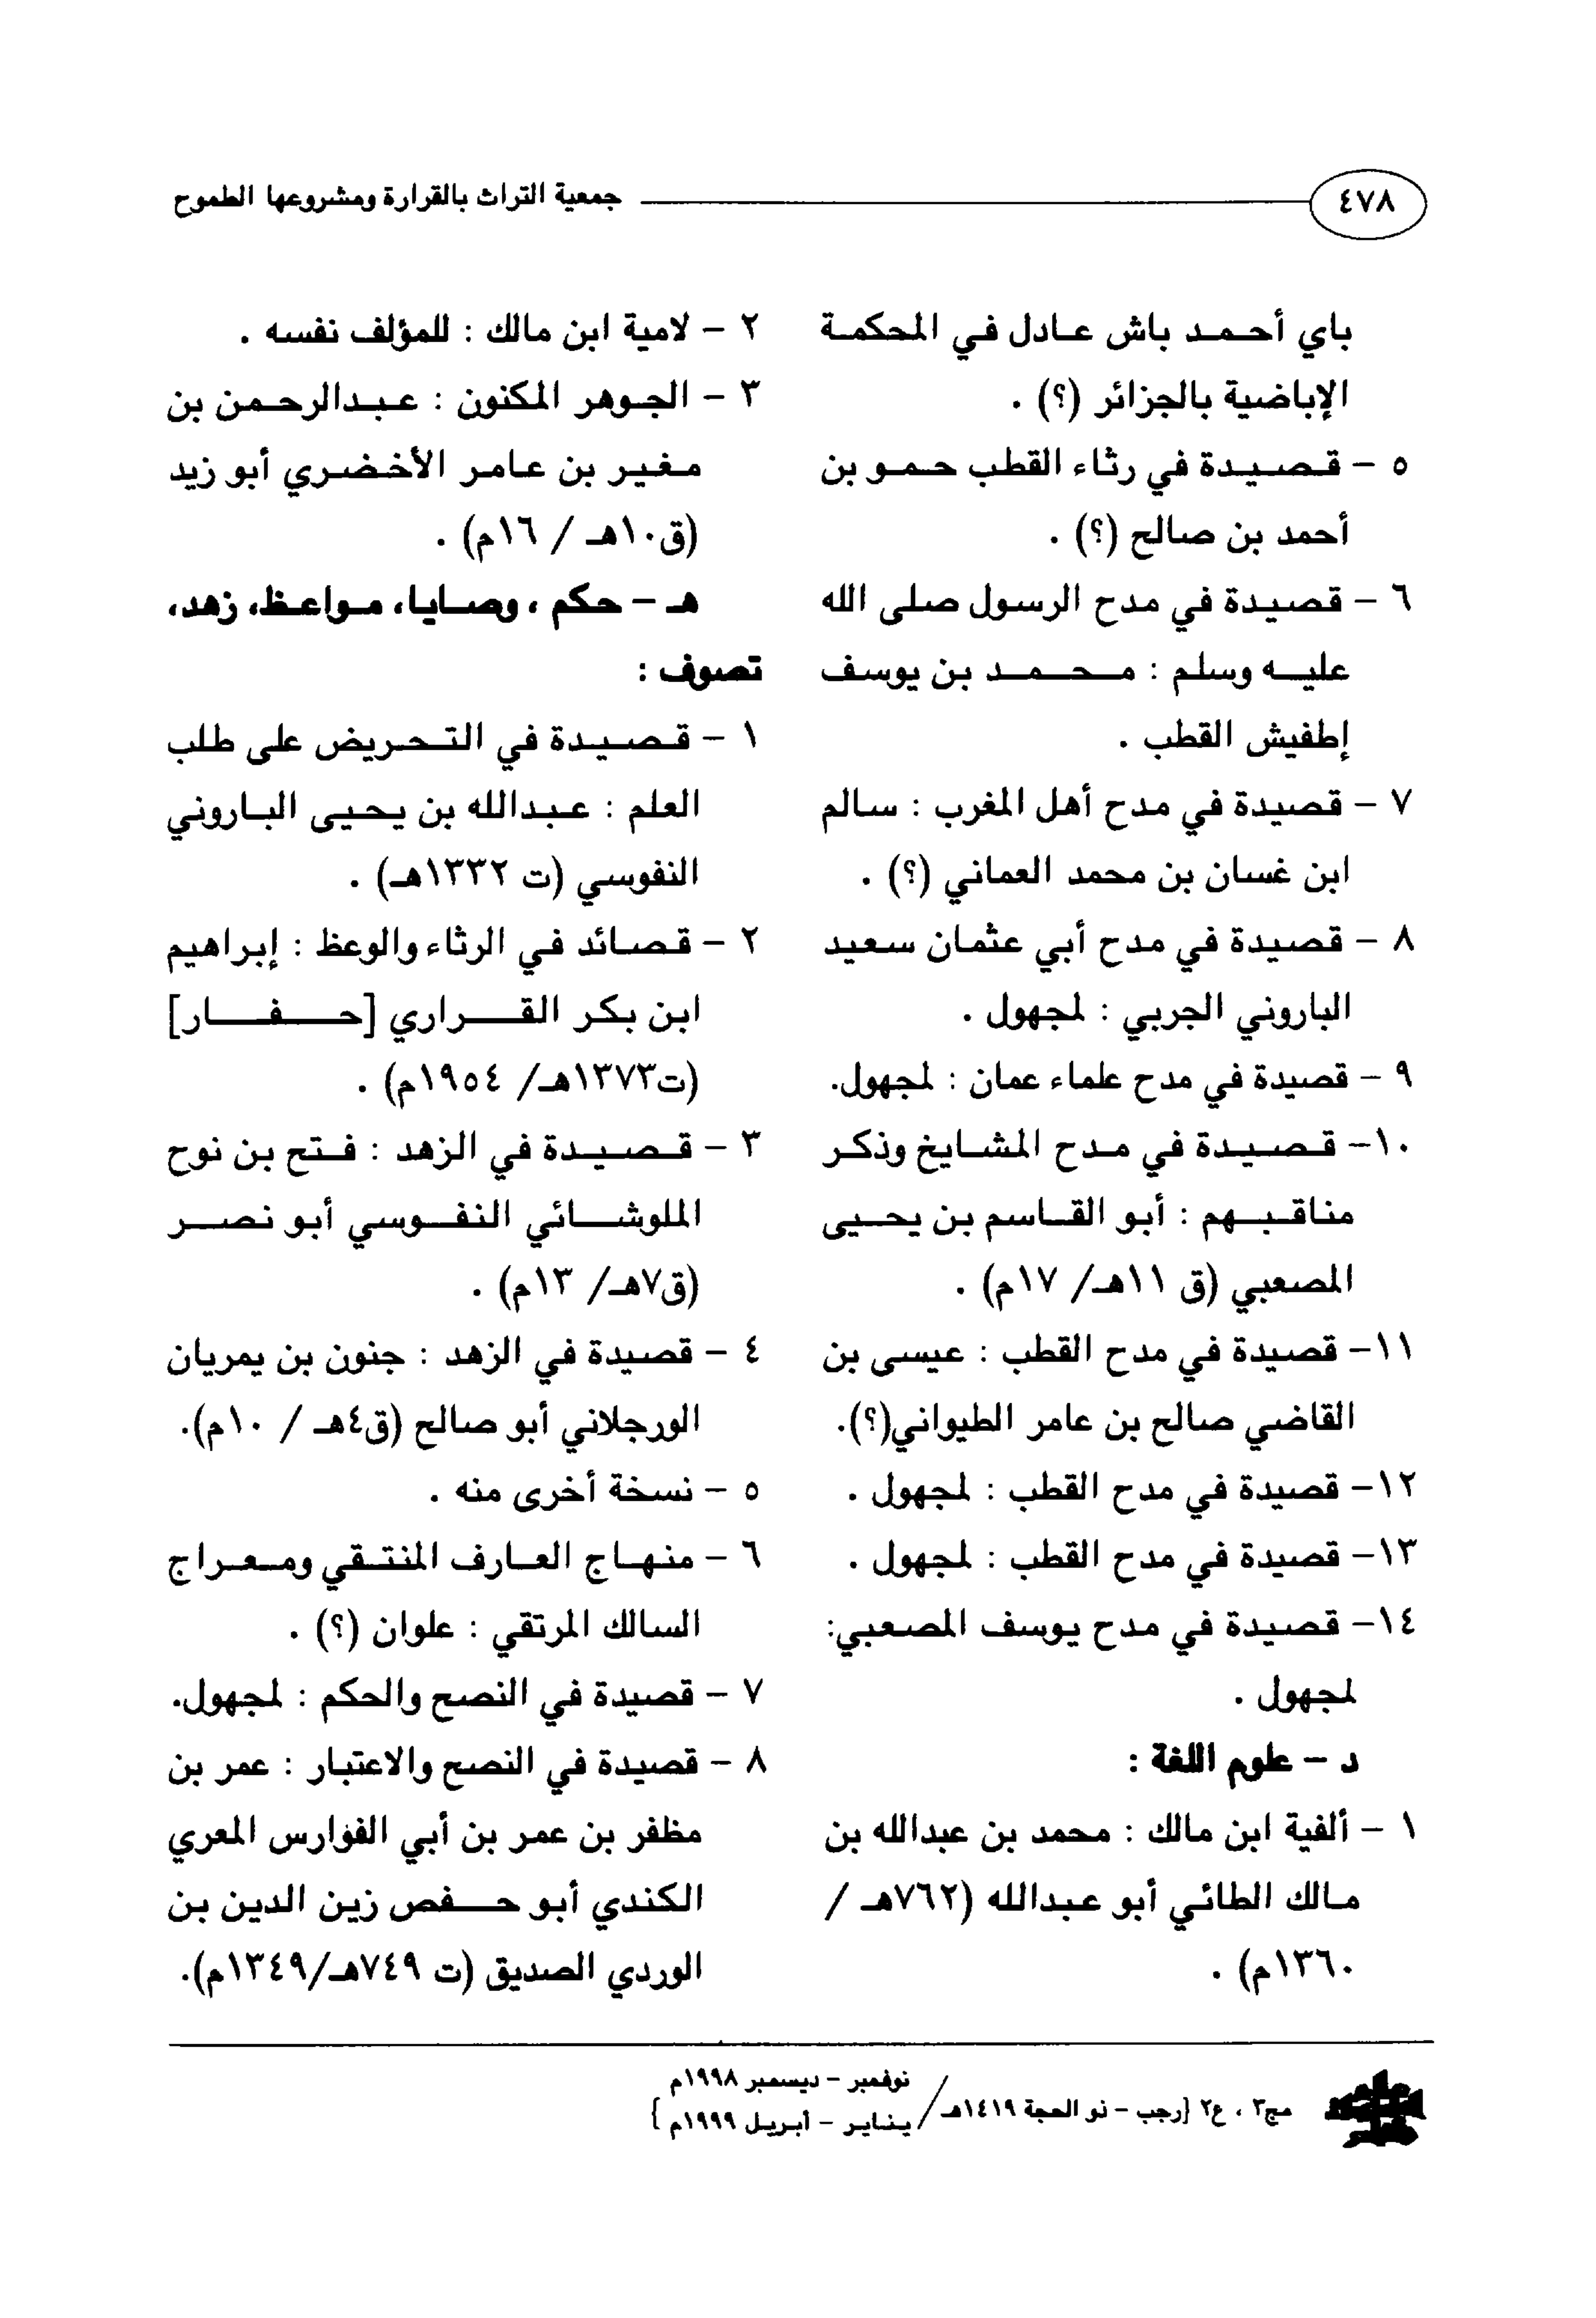 ٤٧٨
جمعية التراث بالقرارة ومشروعها الطموح
باي أحمد باش عادل في المحكمة
الإباضية بالجزائر (؟) .
٥ - قصيدة في رثاء القطب حمو بن
أحمد بن صالح (؟) .
٦ - قصيدة في مدح الرسول صلى الله
عليه وسلم : محمد بن يوسف
إطفيش القطب .
٧ - قصيدة في مدح أهل المغرب : سالم
ابن غسان بن محمد العماني (؟) .
٨ - قصيدة في مدح أبي عثمان سعيد
الباروني الجربي : لمجهول .
٩ - قصيدة في مدح علماء عمان : لمجهول.
١٠- قصيدة في مدح المشايخ وذكر
مناقبهم : أبو القاسم بن يحيى
المصعبي (ق ١١هـ/ ١٧م) .
١١- قصيدة في مدح القطب : عيسى بن
القاضي صالح بن عامر الطيواني(؟).
١٢- قصيدة في مدح القطب : لمجهول .
١٣- قصيدة في مدح القطب : لمجهول .
١٤- قصيدة في مدح يوسف المصعبي:
لمجهول .
د - علوم اللغة :
١ - ألفية ابن مالك : محمد بن عبدالله بن
مالك الطائي أبو عبدالله (٧٦٢هـ /
١٣٦٠م) .
٢ - لامية ابن مالك : للمؤلف نفسه .
٣ - الجوهر المكنون : عبدالرحمن بن
مغير بن عامر الأخضري أبو زيد
(ق١٠هـ / ١٦م) .
هـ - حكم ، وصايا، مواعظ، زهد،
تصوف :
١ - قصيدة في التحريض على طلب
العلم : عبدالله بن يحيى الباروني
النفوسي (ت ١٣٣٢هـ) .
٢ - قصائد في الرثاء والوعظ : إبراهيم
ابن بكر القراري [حفار]
(ت١٣٧٣هـ/ ١٩٥٤م) .
٣ - قصيدة في الزهد : فتح بن نوح
الملوشائي النفوسي أبو نصر
(ق٧هـ/ ١٣م) .
٤ - قصيدة في الزهد : جنون بن يمريان
الورجلاني أبو صالح (ق٤هـ / ١٠م).
٥ - نسخة أخرى منه .
٦ - منهاج العارف المنتقي ومعراج
السالك المرتقي : علوان (؟) .
٧ - قصيدة في النصح والحكم : لمجهول.
٨ - قصيدة في النصح والاعتبار : عمر بن
مظفر بن عمر بن أبي الفوارس المعري
الكندي أبو حفص زين الدين بن
الوردي الصديق (ت ٧٤٩هـ/١٣٤٩م).
نوفمبر - ديسمبر ١٩٩٨م
مج٣ ، ع٢ {رجب - ذو الحجة ١٤١٩هـ/
يناير - أبريل ١٩٩٩م }